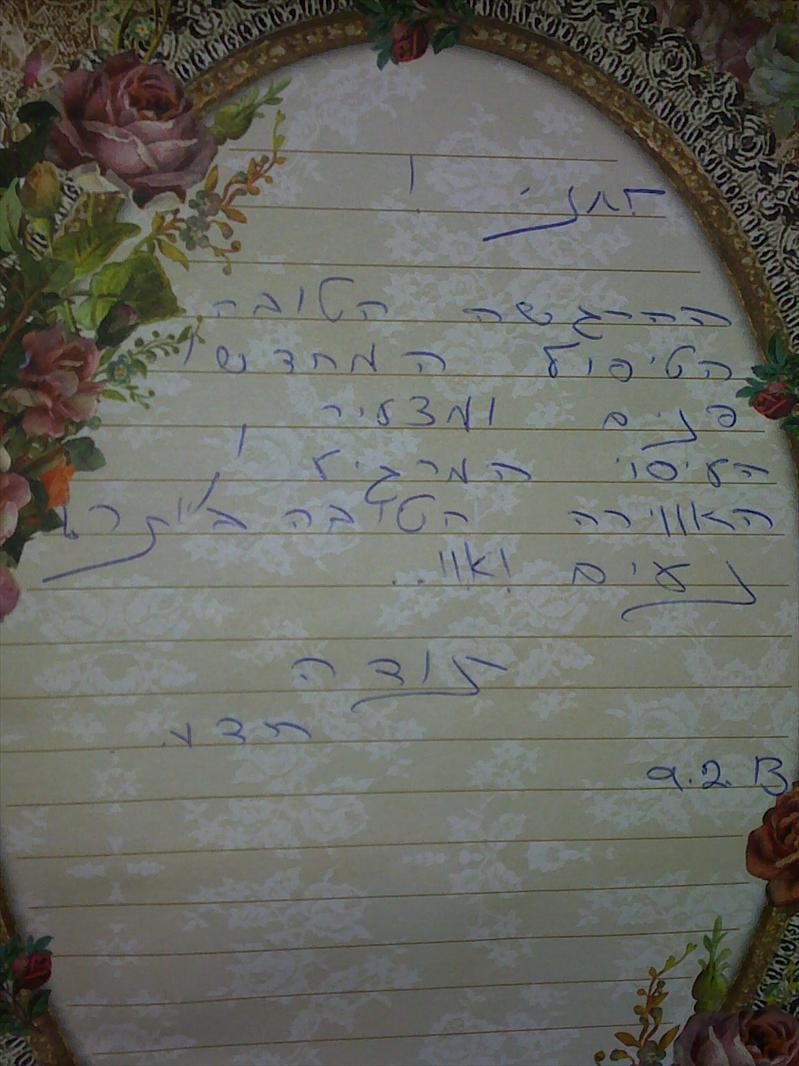 ההרגשה הטובה
הטיפול המחדש
פנים ומצעיר
העיסוי המרגיע
האווירה הטובה ביותר
נעים ואוו..
תודה
9.2.13